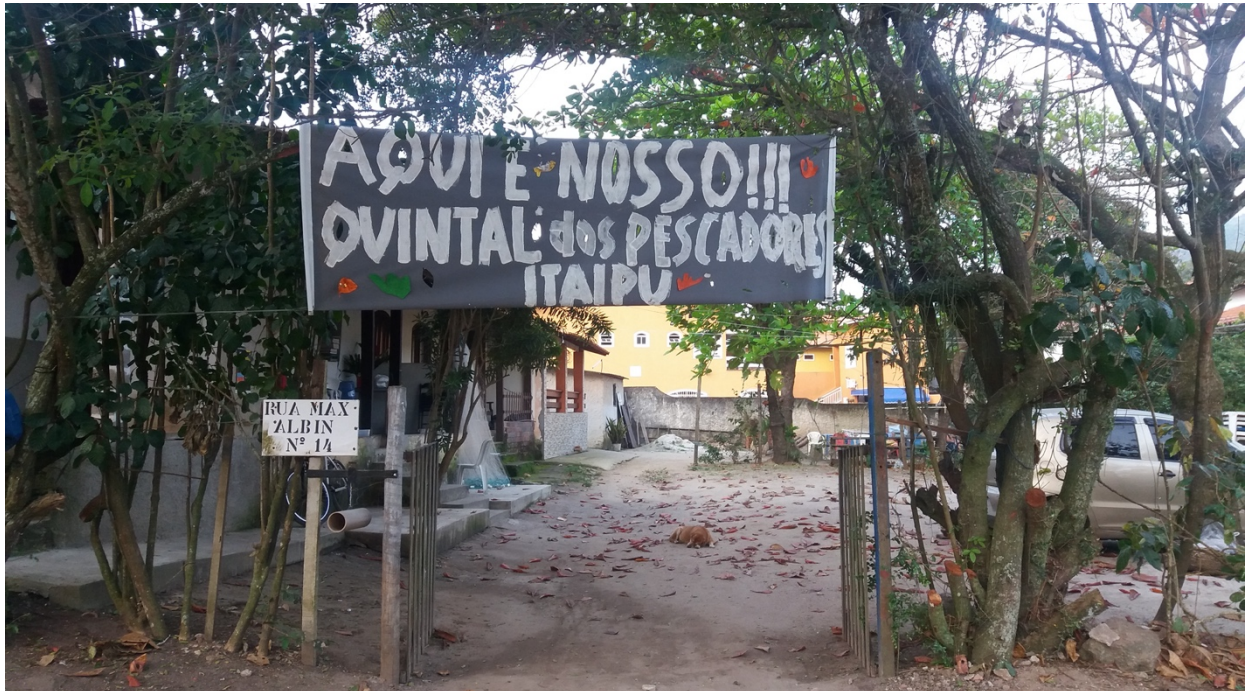 AQUI É NOSSO!!!
QUINTAL dos PESCADORES
ITAIPU
RUA MAX
ALBIN
Nº 14